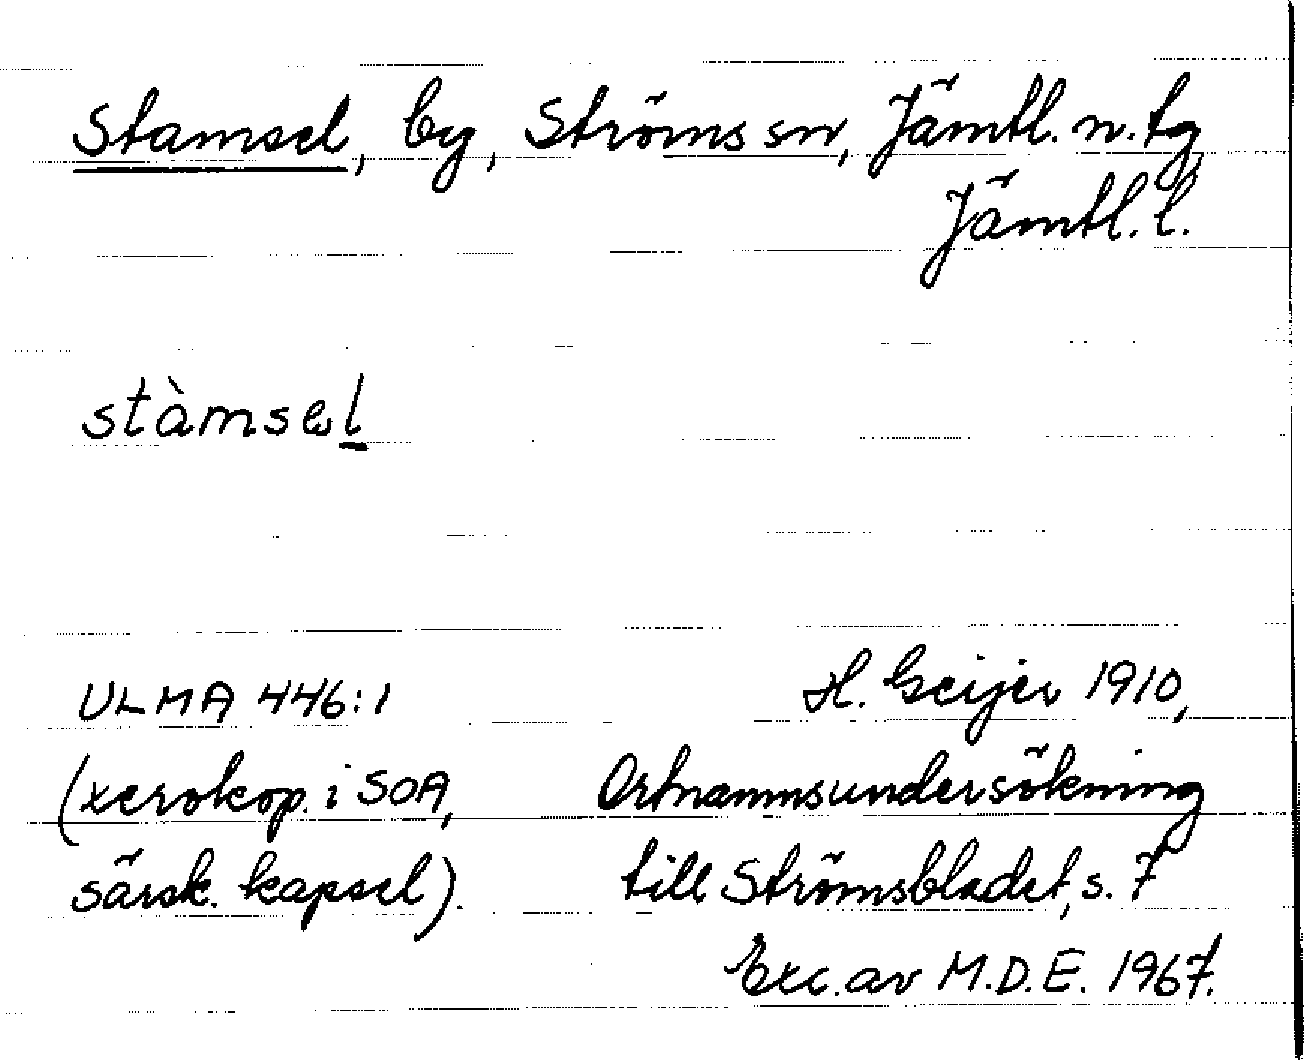 Stamsel, by, Ströms sn, Jämtl. n. tg
Jämtl. l.
stàmsel
ULMA 446:1
(xerokop. i SOA,
särsk. kapsel).
H. Geijer 1910,
Ortnammsundersökning
till Strömsbladet, s. 7
Exc. av M.D.E. 1967.